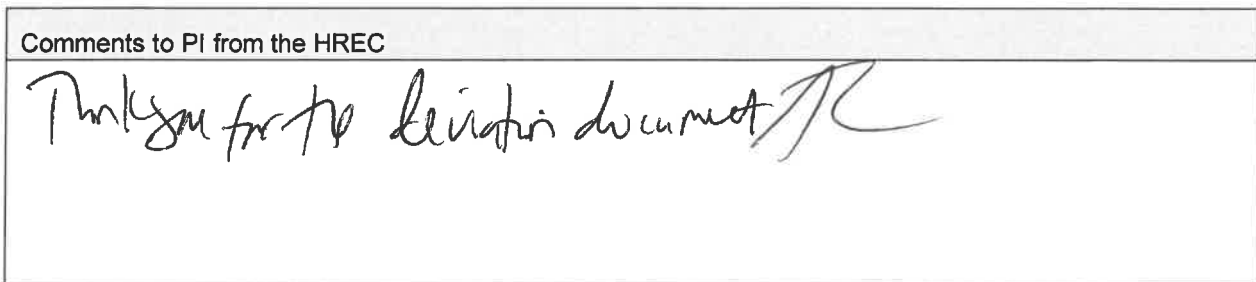 Comments to PI from the HREC
Thank you for the deviation document